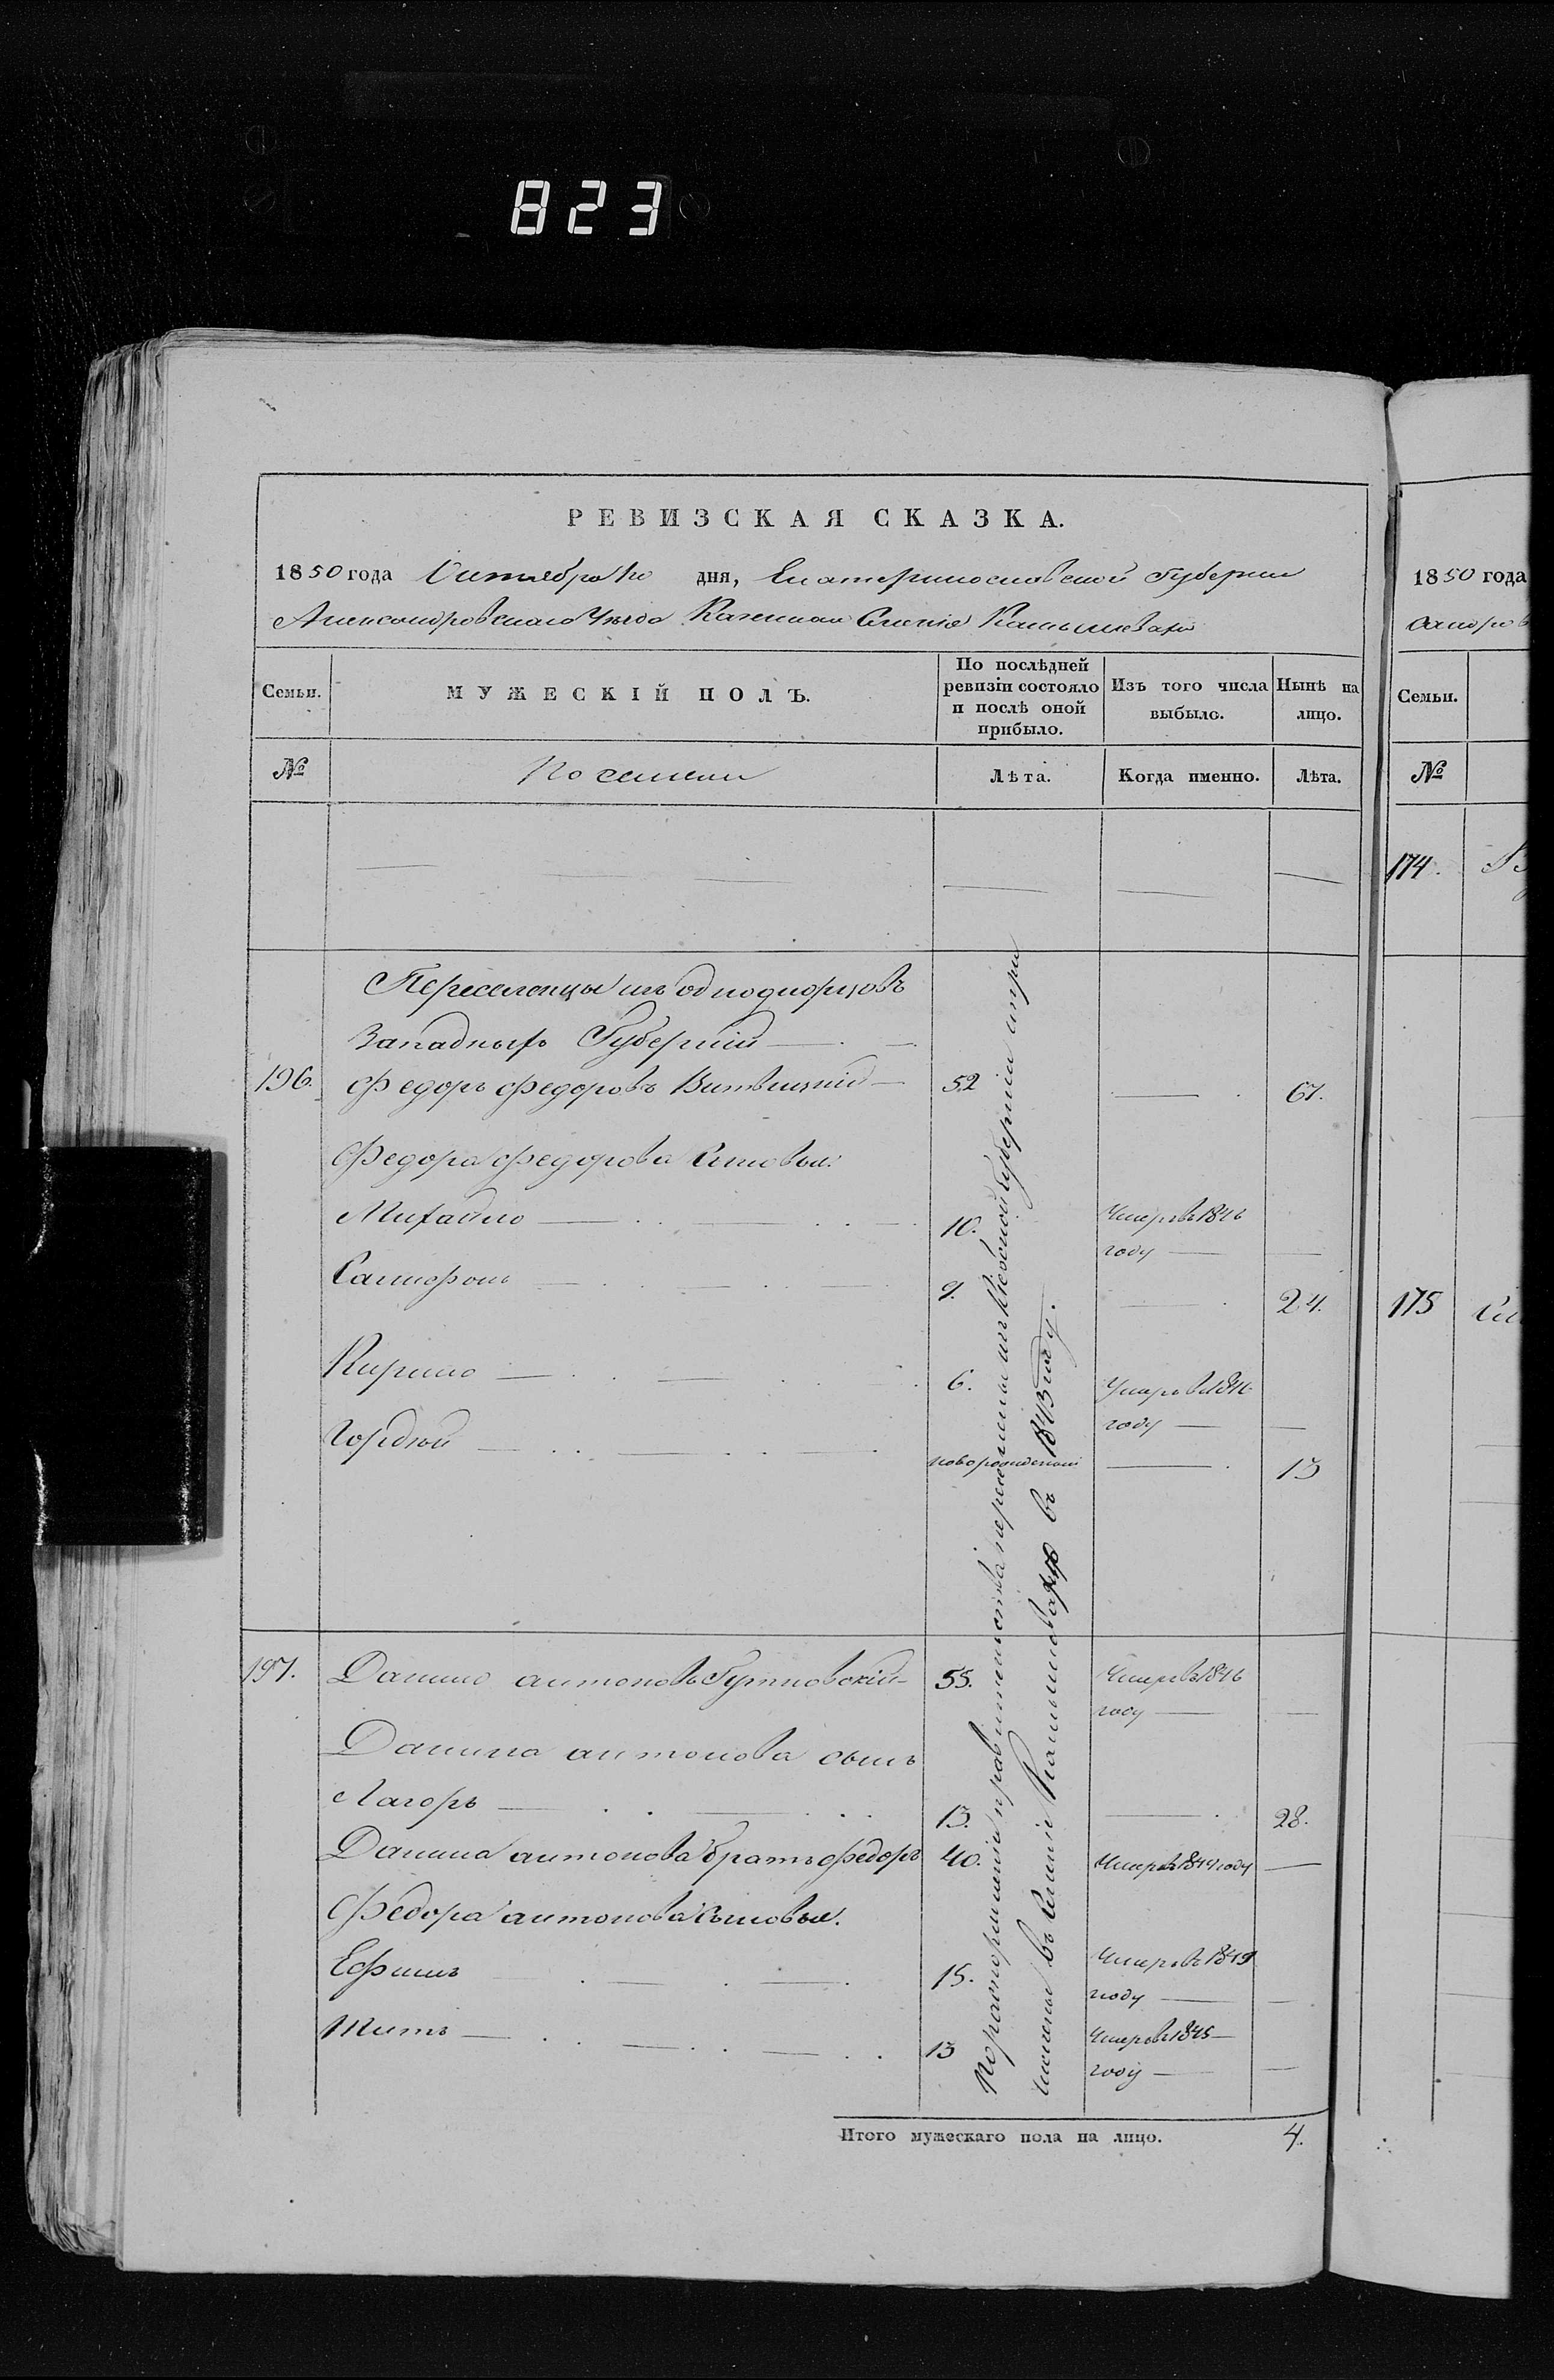 823
РЕВИЗСКАЯ СКАЗКА.
1850 года Октября 10 дня, Екатеринославской Губернии
Александровскаго Уезда Казеннаго Селенія
Семьи.
МУЖЕСКІЙ ПОЛЪ.
По послѣдней ревизіи состояло и послѣ оной прибыло.
Изъ того числа выбыло.
Нынѣ на лицо.
№
Лѣта.
Когда именно.
Лѣта.
Переселенцы изъ однодворцовъ
Западныхъ Губерній
196. Федоръ Федоровъ Витвицкий 52 67.
Федора Федорова Сыновья:
Михайло 10. Умеръ въ 1846
году
9. 24.
Кирило 6. Умеръ въ 1846
году
Гордѣй новорожденный 13
197. Данило Антоновъ 55. Умеръ въ 1846
году
Данила Антонова сынъ
13. 28.
Данила Антонова братъ Федоръ 40. Умеръ въ 1844 году
Федора Антонова Сыновья.
Ефимъ 15. Умеръ въ 1849
году
Титъ 13 Умеръ въ 1845
году
По распоряженію правительства переселены изъ Кіевской Губерніи и при
числены въ Селеніи въ 1843 году.
Итого мужескаго пола на лицо. 4.
1850 года
Семьи.
№
174.
175